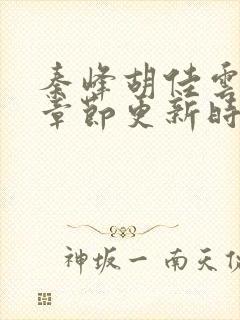 秦峰胡佳雲
章節更新時
神坂一 南天